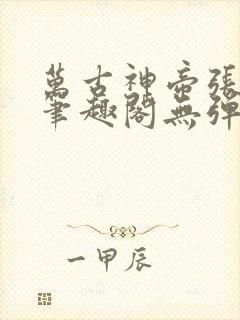 萬古神帝張
筆趣閣無彈
一甲辰